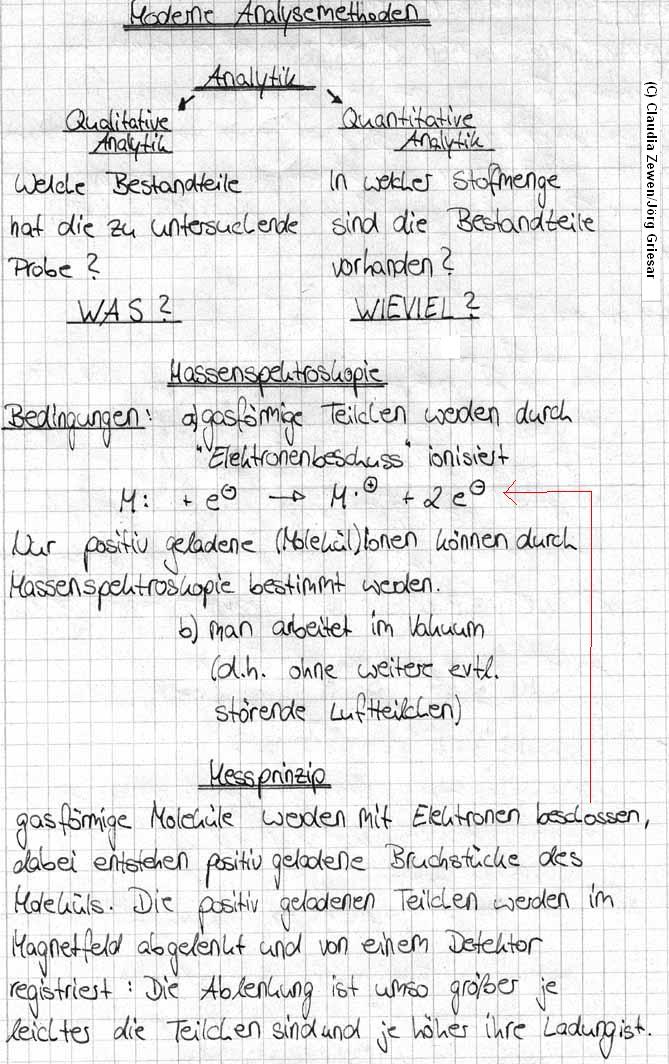 Moderne Analysemethoden
Analytik
Qualitative
Analytik
Welche Bestandteile
hat die zu untersuchende
Probe?
WAS?
Quantitative
Analytik
In welcher Stofmenge
sind die Bestandteile
vorhanden?
WIEVIEL?
(C) Claudia Zewen/Jörg Griesar
Massenspektroskopie
Bedingungen: a) gasförmige Teilchen werden durch
"Elektronenbeschuss" ionisiert
M: + e⊖ → M·⊕ + 2 e⊖
Nur positiv geladene (Molekül)Ionen können durch
Massenspektroskopie bestimmt werden.
b) man arbeitet im Vakuum
(d.h. ohne weitere evtl.
störende Luftteilchen)
Messprinzip
gasförmige Moleküle werden mit Elektronen beschossen,
dabei entstehen positiv geladene Bruchstücke des
Moleküls. Die positiv geladenen Teilchen werden im
Magnetfeld abgelenkt und von einem Detektor
registriert: Die Ablenkung ist umso größer je
leichter die Teilchen sind und je höher ihre Ladung ist.